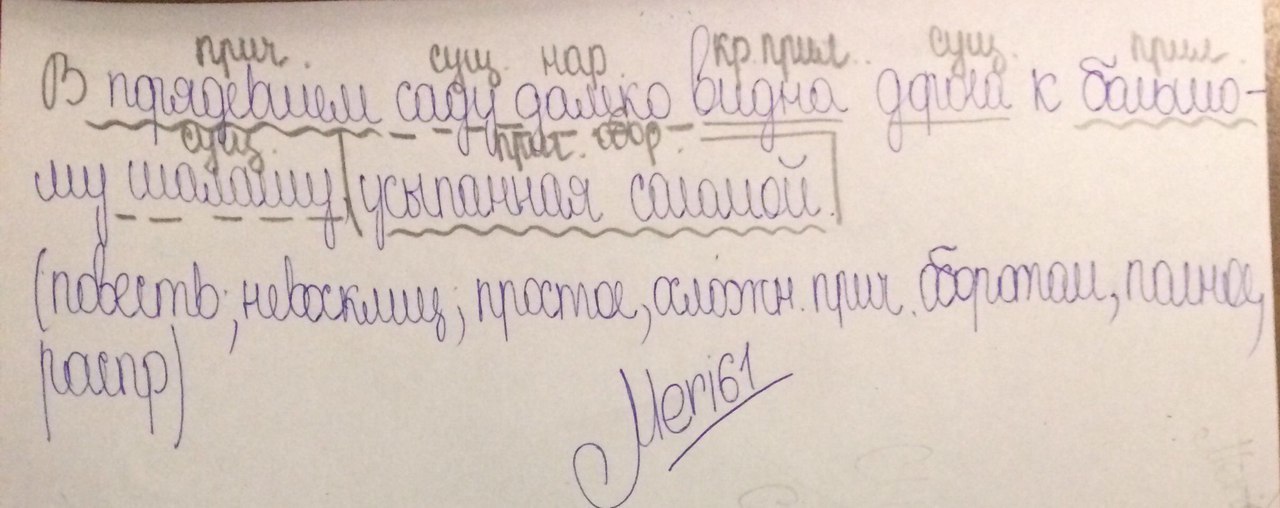 прич. сущ. нар. кр.прил. сущ. прил.
В поредевшем саду далеко видна дорога к большо-
сущ. прич. обор.
му шалашу, усыпанная соломой.
(повеств; невосклиц; простое, осложн. прич. оборотом, полное,
распр)
Meri61